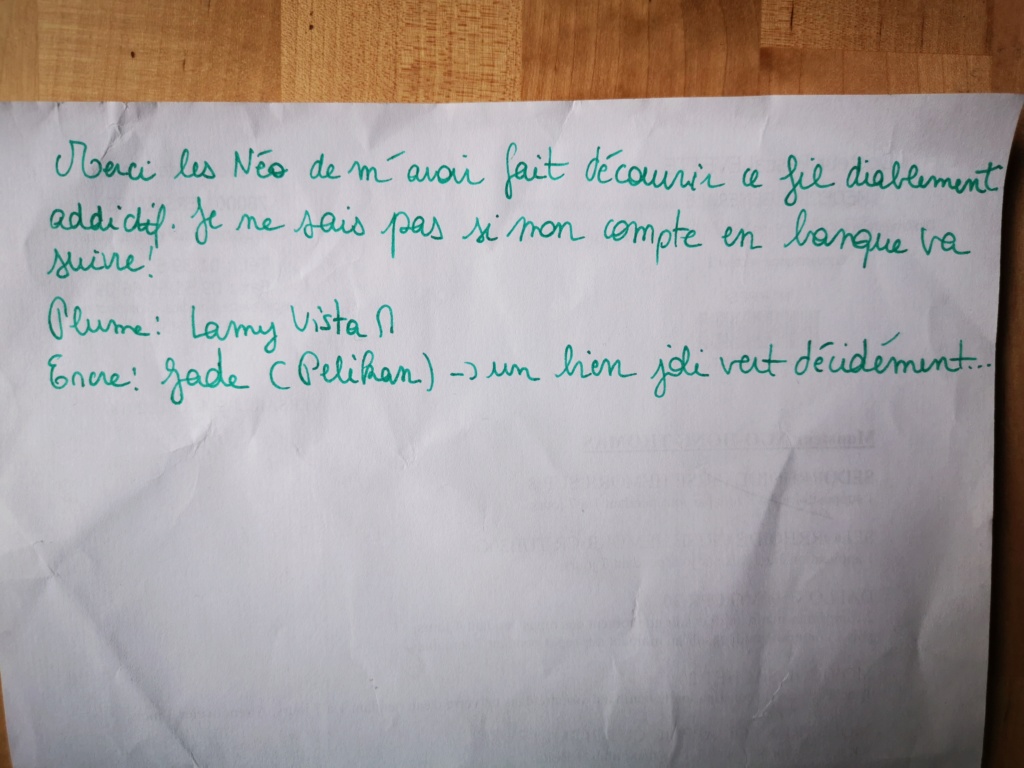 Merci les Néo de m'avoir fait découvrir ce fil diablement
addictif. Je ne sais pas si mon compte en banque va
suivre!
Plume: Lamy Vista M
Encre: Jade (Pelikan) -> un bien joli vert décidément...